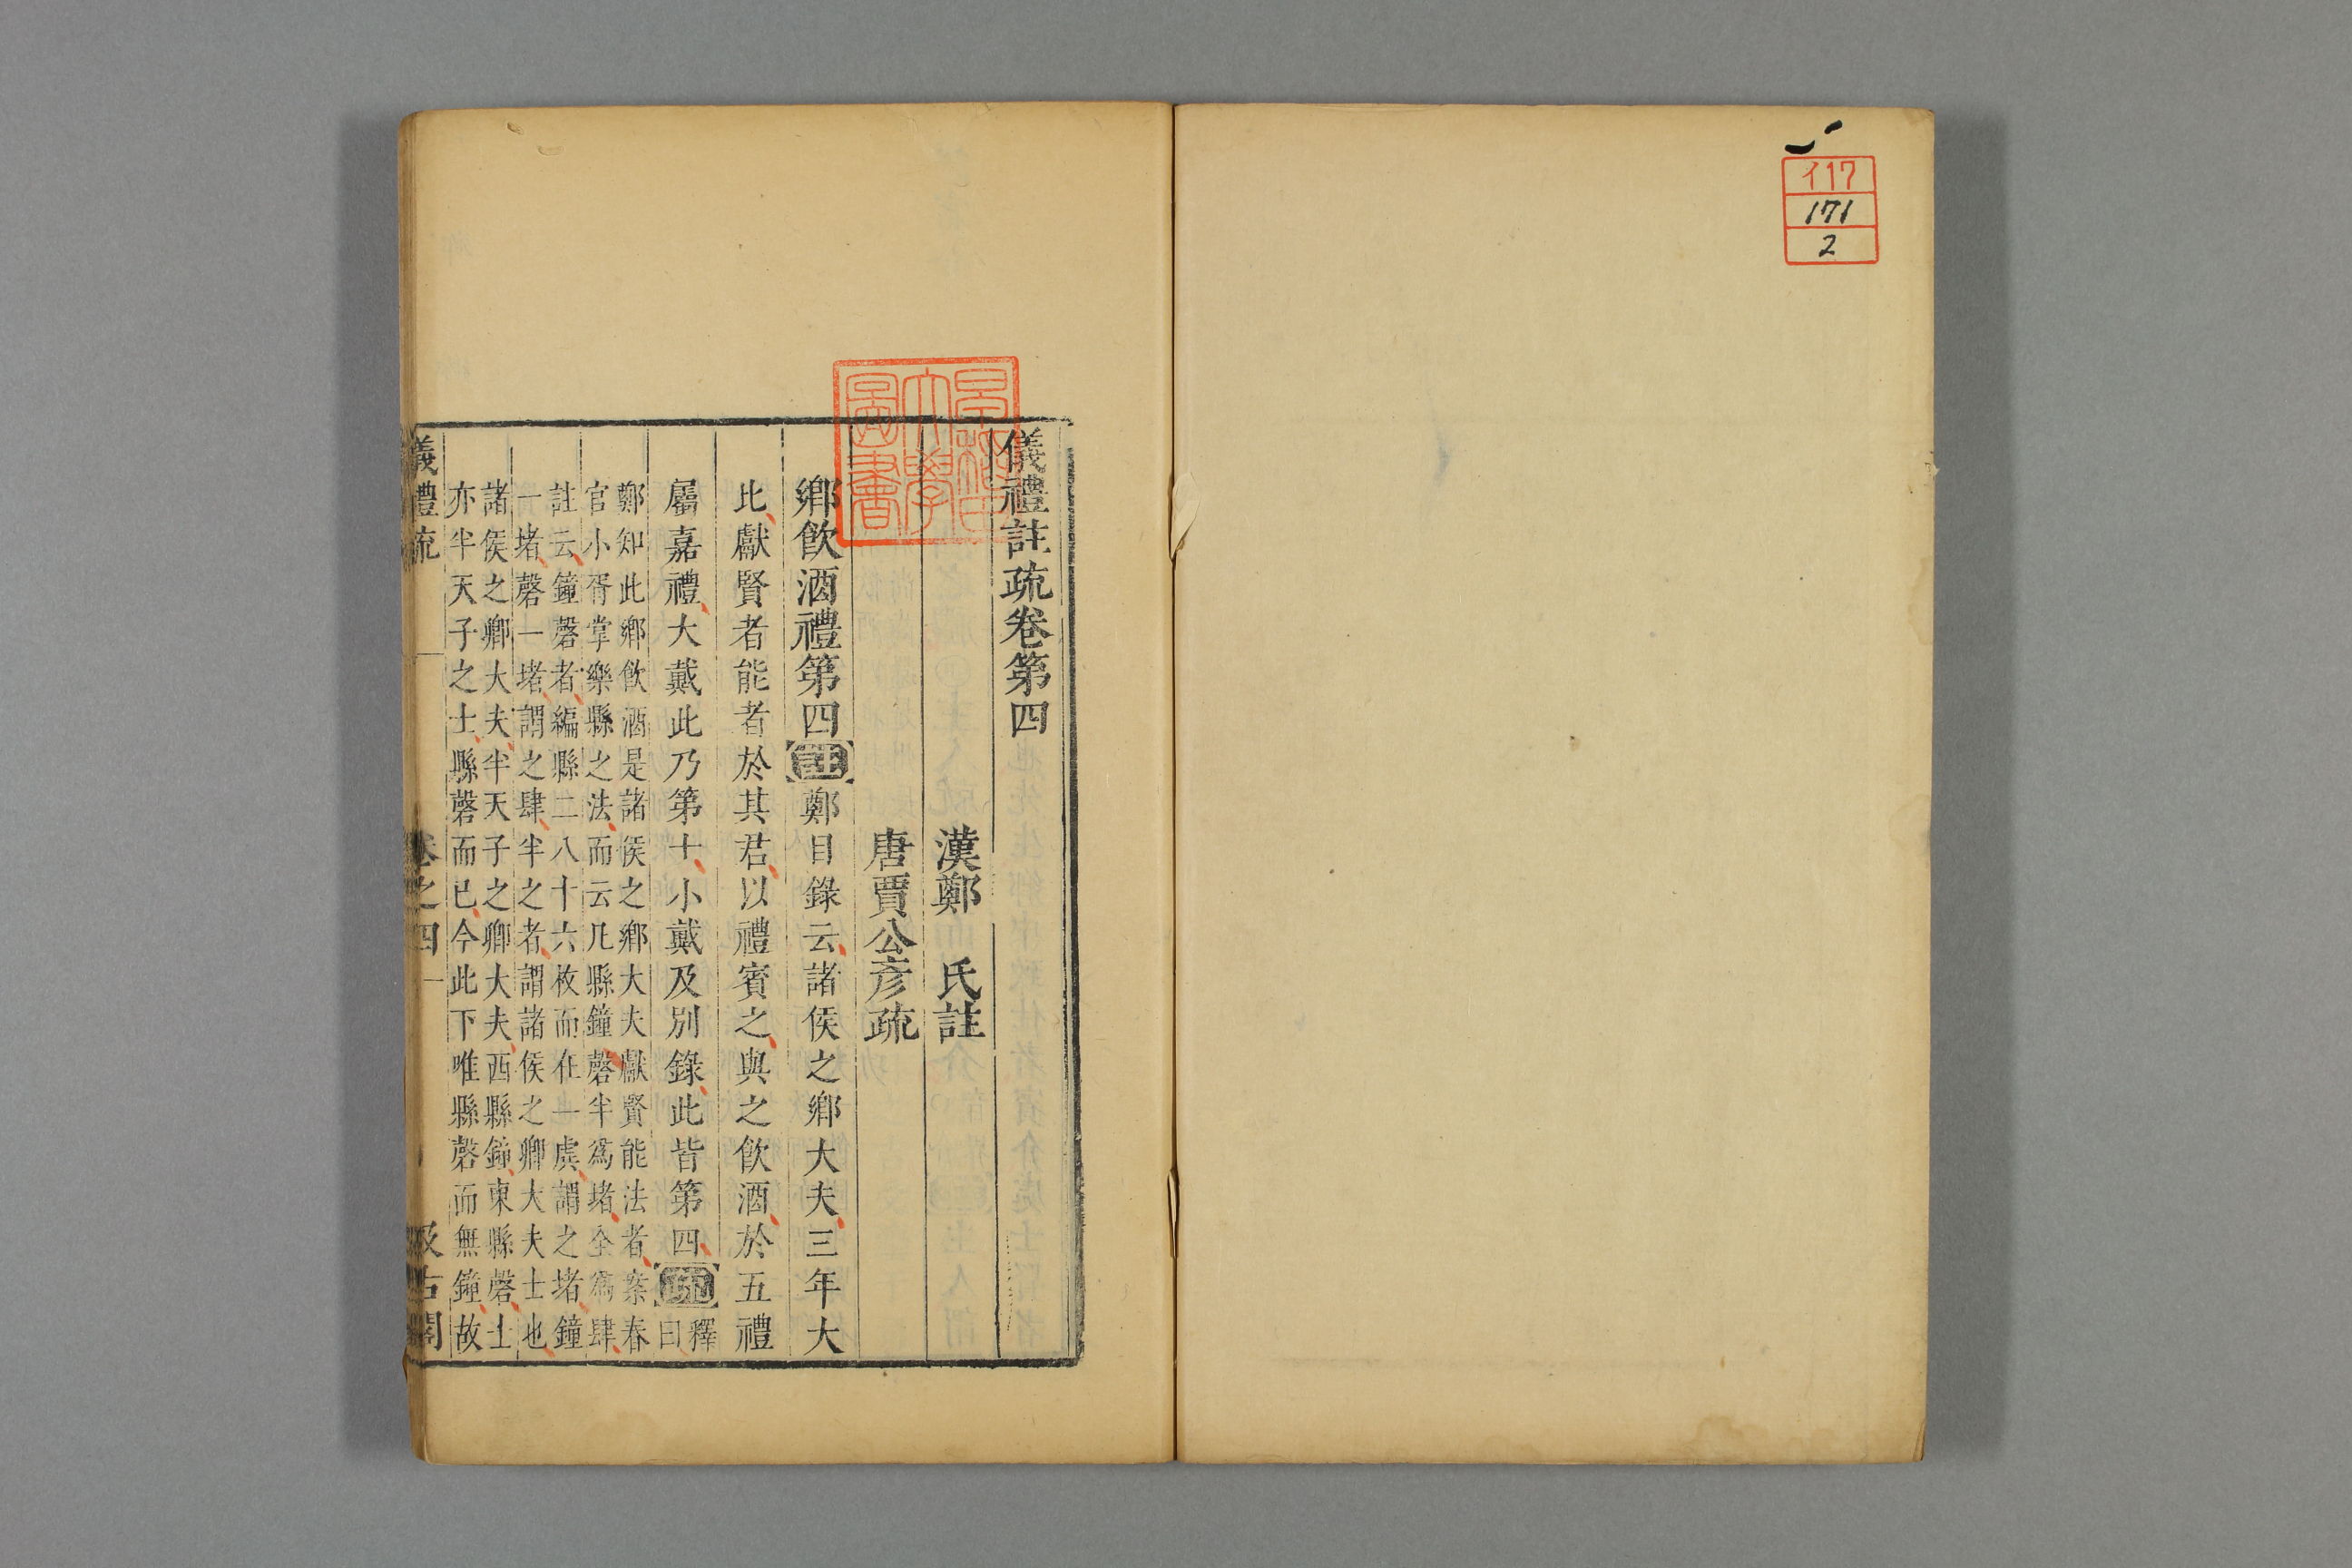 イ17
171
2
早稲田大學圖書
儀禮註疏卷第四
漢鄭　氏註
唐賈公彦疏
鄉飲酒禮第四 註 鄭目錄云諸侯之鄉大夫三年大
比獻賢者能者於其君以禮賓之與之飲酒於五禮
屬嘉禮大戴此乃第十小戴及別錄此皆第四 疏 釋
曰
鄭知此鄉飲酒是諸侯之鄉大夫獻賢能法者案春
官小胥掌樂縣之法而云凡縣鐘磬半爲堵全爲肆
註云鐘磬者編縣二八十六枚而在一虡謂之堵鐘
一堵磬一堵謂之肆半之者謂諸侯之卿大夫士也
諸侯之卿大夫半天子之卿大夫西縣鐘東縣磬士
亦半天子之士縣磬而已今此下唯縣磬而無鐘故
儀禮疏　卷之四　一　汲古閣